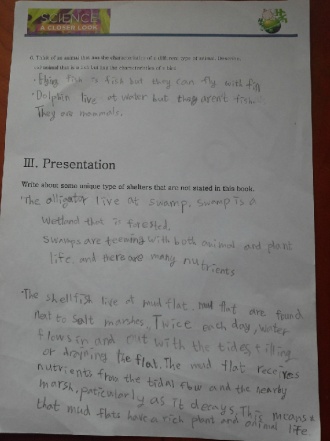 SCIENCE
A CLOSER LOOK
6. Think of an animal that has the characteristics of a different type of animal.
animal that is a but has the characteristics of a
· fish is fish but they can fly with fin
· Dolphin live at water but they aren't fish.
They are mammals.
III. Presentation
Write about some unique type of shelters that are not stated in this book.
· The alligator live at swamp, swamp is a
wetland that is forested.
swamps are teeming with both animal and plant
life. and there are many nutrients
· The shellfish live at mud flat. mud flat are found
next to salt marshes. Twice each day, water
flows in and out with the tides, filling
or draining the flat. The mud flat receives
nutrients from the tidal flow and the nearby
marsh, paticularly as it decays. This means
that mud flats have a rich plant and animal life